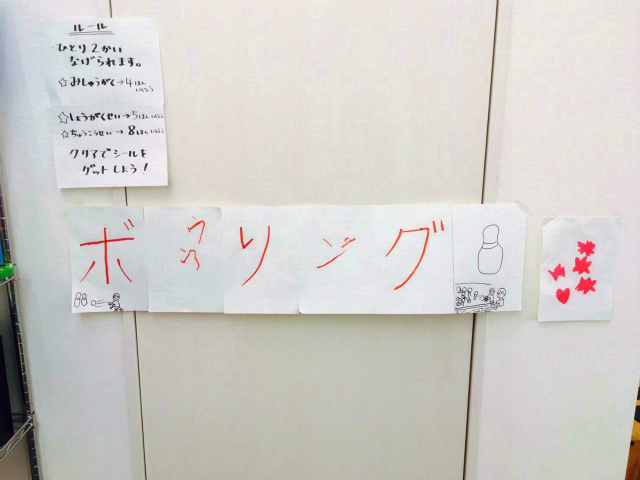 ルール
ひとり2かい
なげられます。
☆みしゅうがく→4ほん
いじょう
☆しょうがくせい→5ほんいじょう
☆ちゅうこうせい→8ほんいじょう
クリアでシールを
ゲットしよう!
ボうリング